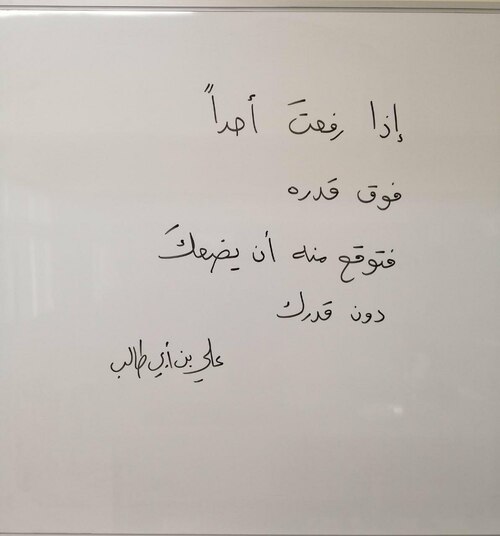 إذا رفعتَ أحداً
فوق قدره
فتوقع منه أن يضعكَ
دون قدرك
علي بن أبي طالب